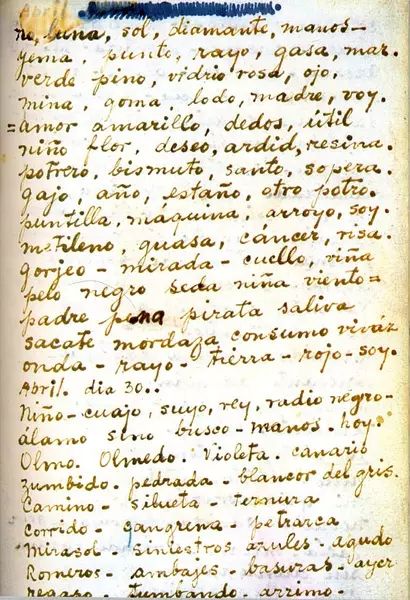 no, luna, sol, diamante, manos-
yema, punto, rayo, gasa, mar.
verde pino, vidrio rosa, ojo,
mina, goma, lodo, madre, voy.
=amor amarillo, dedos, útil
niño flor, deseo, ardid, resina.
potrero, bismuto, santo, sopera.
gajo, año, estaño, otro potro.
puntilla, maquina, arroyo, soy.
metileno, guasa, cáncer, risa.
gorjeo - mirada - cuello, viña
pelo negro seda niña viento=
padre pena pirata saliva
sacate mordaza consumo viváz
onda - rayo - tierra - rojo - soy.
Abril. dia 30..
Niño-cuajo, suyo, rey, radio negro-
álamo sino busco - manos. hoy.
Olmo. Olmedo. Violeta. canario
zumbido. pedrada - blancor del gris.
Camino - silueta - ternura
corrido - gangrena - petrarca
Mirasol - siniestros azules - agudo
Romeros - ambajes - basuras - ayer
regazo - tumbando - arrimo -